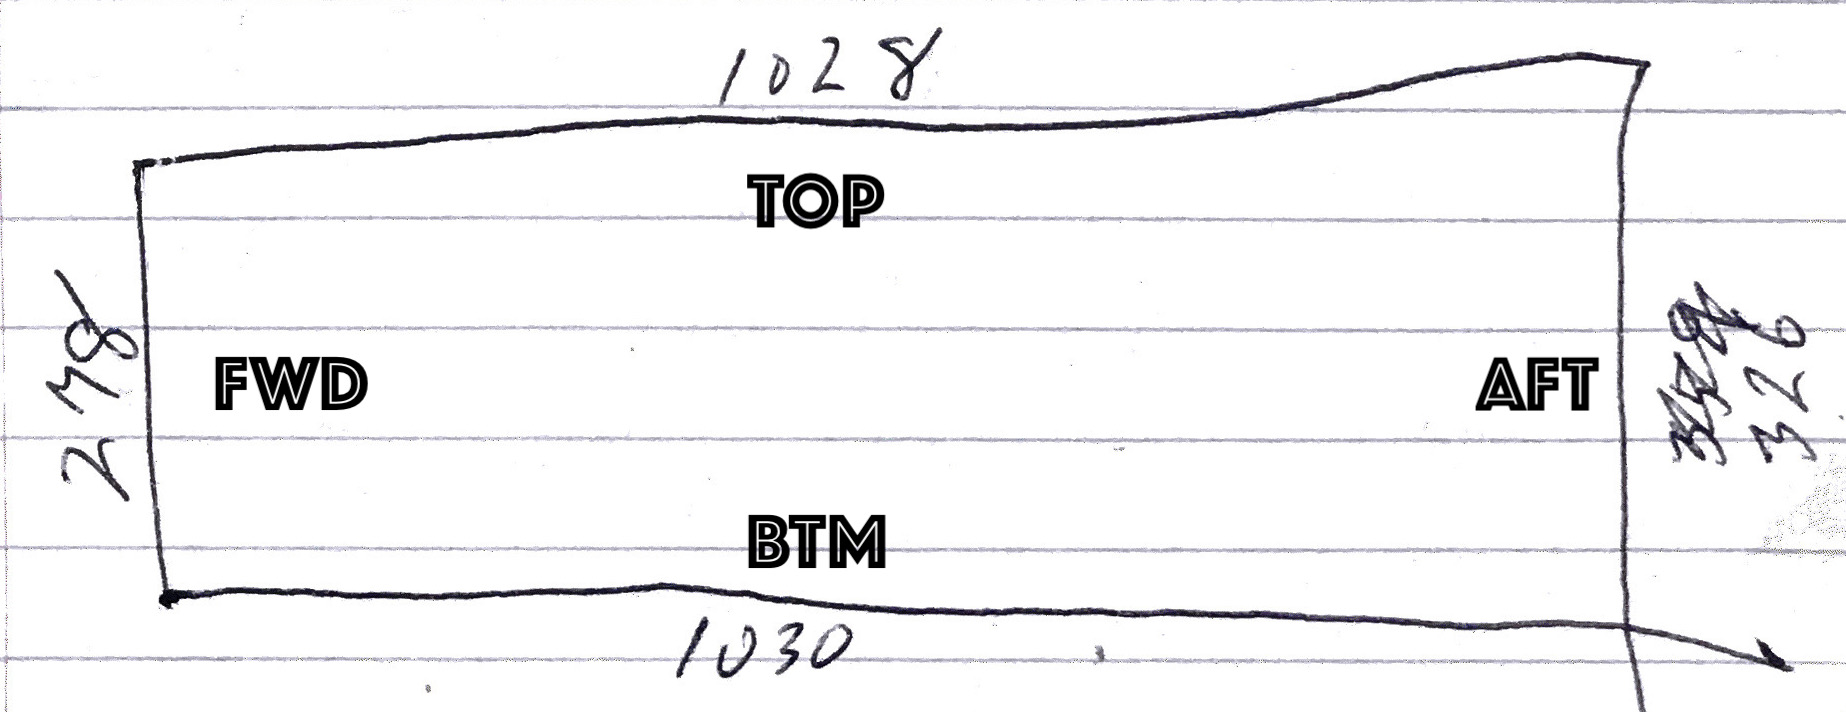 1028
TOP
278
FWD
AFT
326
BTM
1030